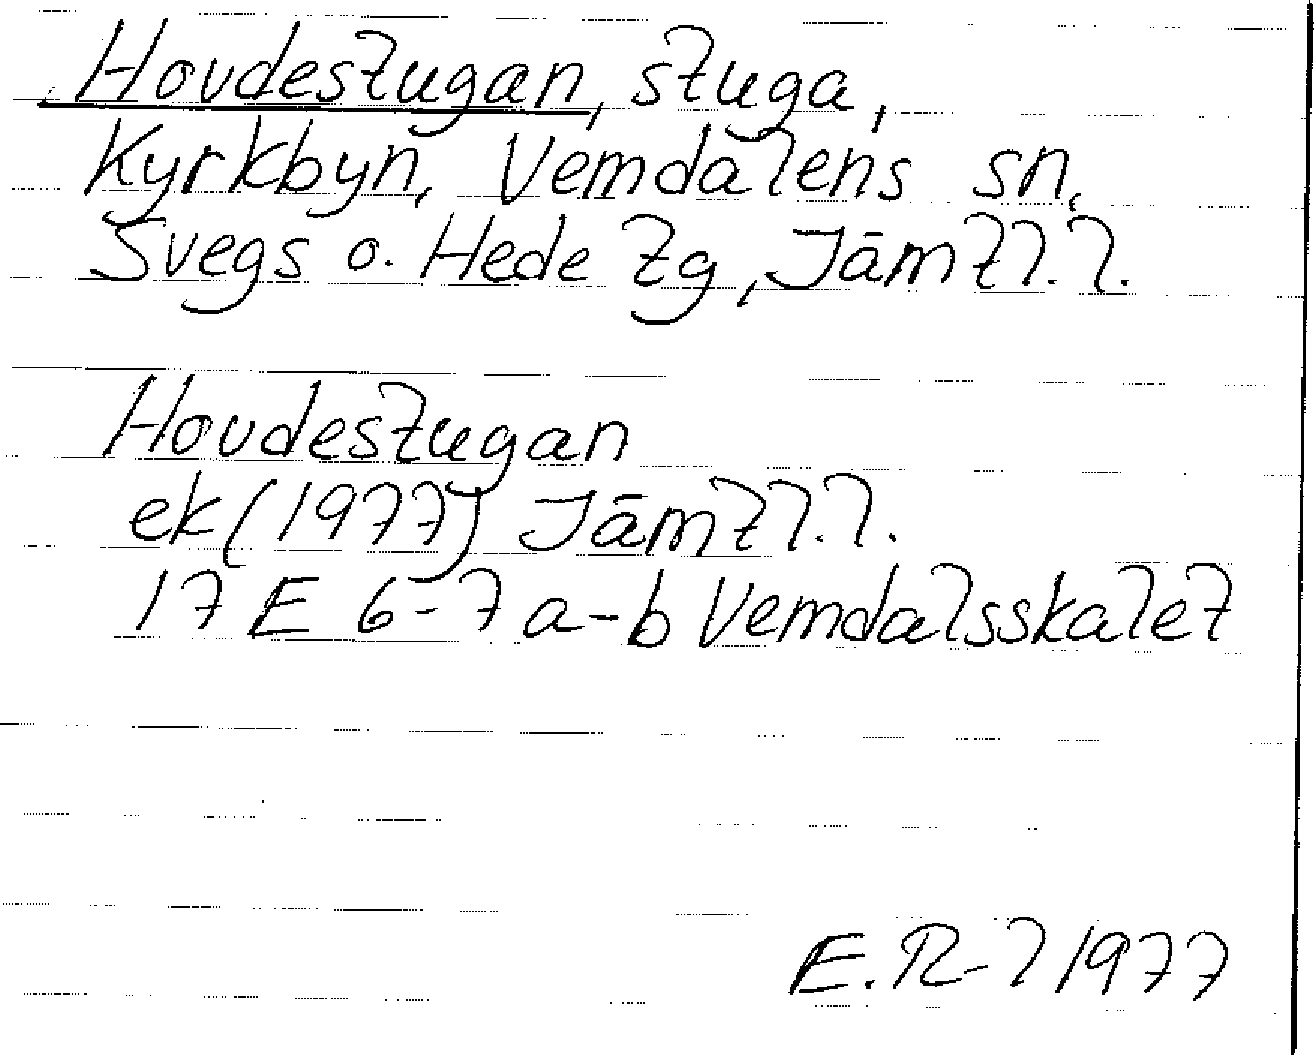 Hovdestugan, stuga,
Kyrkbyn, Vemdalens sn,
Svegs o. Hede tg, Jämtl.l.
Hovdestugan
ek (1977) Jämtl.l.
17 E 6-7 a-b Vemdalsskalet
E.R-l 1977